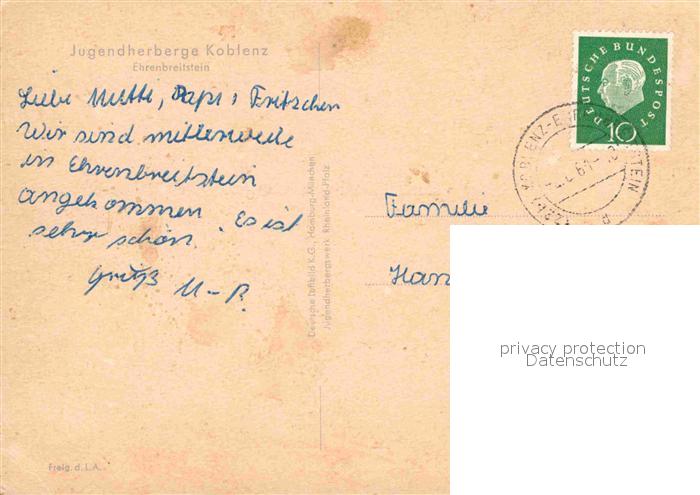 Jugendherberge Koblenz
Ehrenbreitstein
Liebe Mutti, Papi, Fritzchen
Wir sind mittlerweile
in Ehrenbreitstein
angekommen. Es ist
sehr schön.
Gruß U-P.
Deutsche Luftbild K.G., Hamburg-München
Jugendherbergswerk Rheinland-Pfalz
Freig. d. L.A.
DEUTSCHE BUNDESPOST
10
KOBLENZ-EHRENBREITSTEIN
61
Familie
Han
privacy protection
Datenschutz